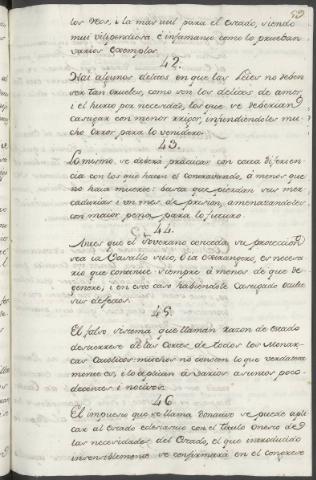 los Veos, i la mas util para el Estado, siendo
mui vilipendiosa é infamante como lo prueban
varios exemplos.
42.
Hai algunos delitos en que las Leies no deben
ser tan crueles, como son los delitos de amor,
i el hurto por necesidad, los que se deberian
castigar con menor rrigor, infundiendoles mu-
cho orror para lo venidero.
43.
Lo mismo se deberá practicar con corta diferien-
cia con los que hacen el contravando, á menos que
no haia muerte: basta que pierdan sus mer-
cadurias i un mes de prision, amenazandoles
con maior pena para lo futuro.
44.
Antes que el Soverano conceda su proteccion
sea la Cavallo suio, ó la extrangero, es necesa-
rio que continue siempre á menos de que de-
genere, i en este caso habiendole Castigado
sus defectos.
45.
El falso sistema que llaman razon de estado
desterrese de las Cortes de todos los Monar-
cas Catolicos: muchos no conocen lo que verdadera-
mente es, i lo aplican á varios asuntos poco
decentes i nocivos.
46
El impuesto que se llama Donativo se puede apli-
car al Estado eclesiastico con el titulo oneroso de
las necesidades del Estado, el que introducido
insensiblemente se confirmará en el congreso